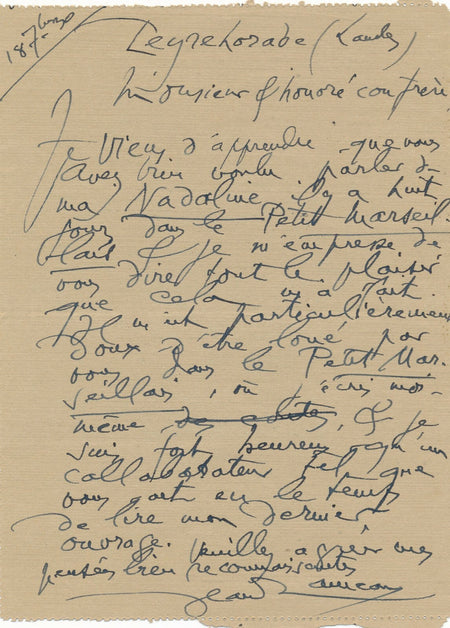 18 7bre
Peyrehorade (Landes)
Monsieur & honoré confrère,
Je viens d'apprendre que vous
avez bien voulu parler de
ma Nadaline il y a huit
jours dans le Petit Marseil-
lais & je m'empresse de
vous dire tout le plaisir
que cela m'a fait.
Il m'est particulièrement
doux d'être loué par
vous dans le Petit Mar-
seillais, où j'écris moi-
même, & je
suis fort heureux qu'un
collaborateur tel que
vous ait eu le temps
de lire mon dernier
ouvrage. Veuillez agréer mes
pensées bien reconnaissantes
Jean Rameau